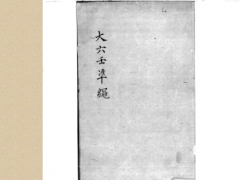 大六壬準繩